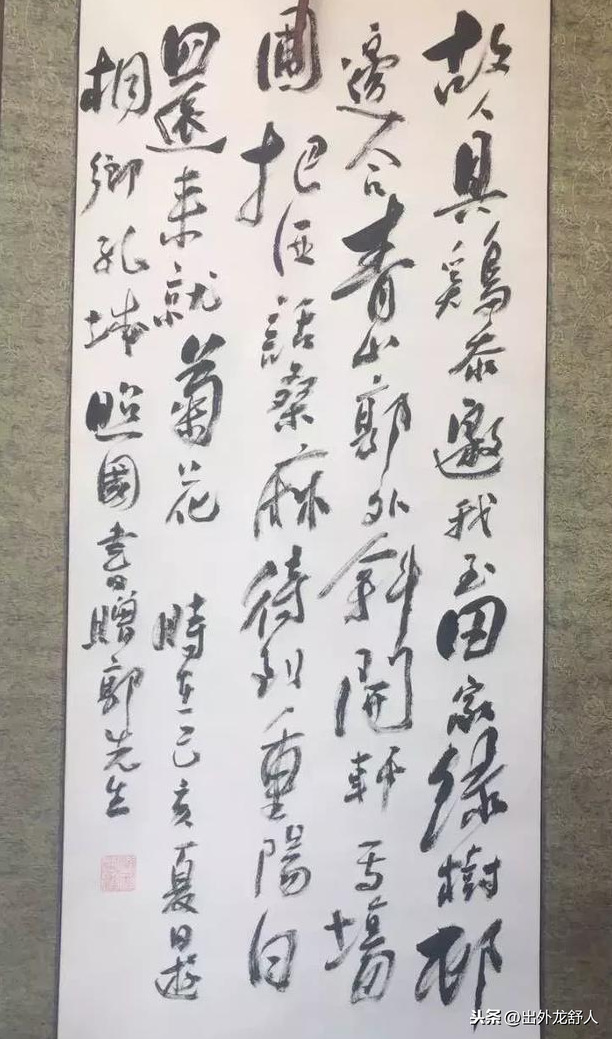 故人具鷄黍邀我至田家綠樹邨
邊合青山郭外斜開軒面場
圃把酒話桑麻待到重陽日
還來就菊花 時在己亥夏日遊
桐鄉孔城照國書贈郭先生
头条 @出外龙舒人